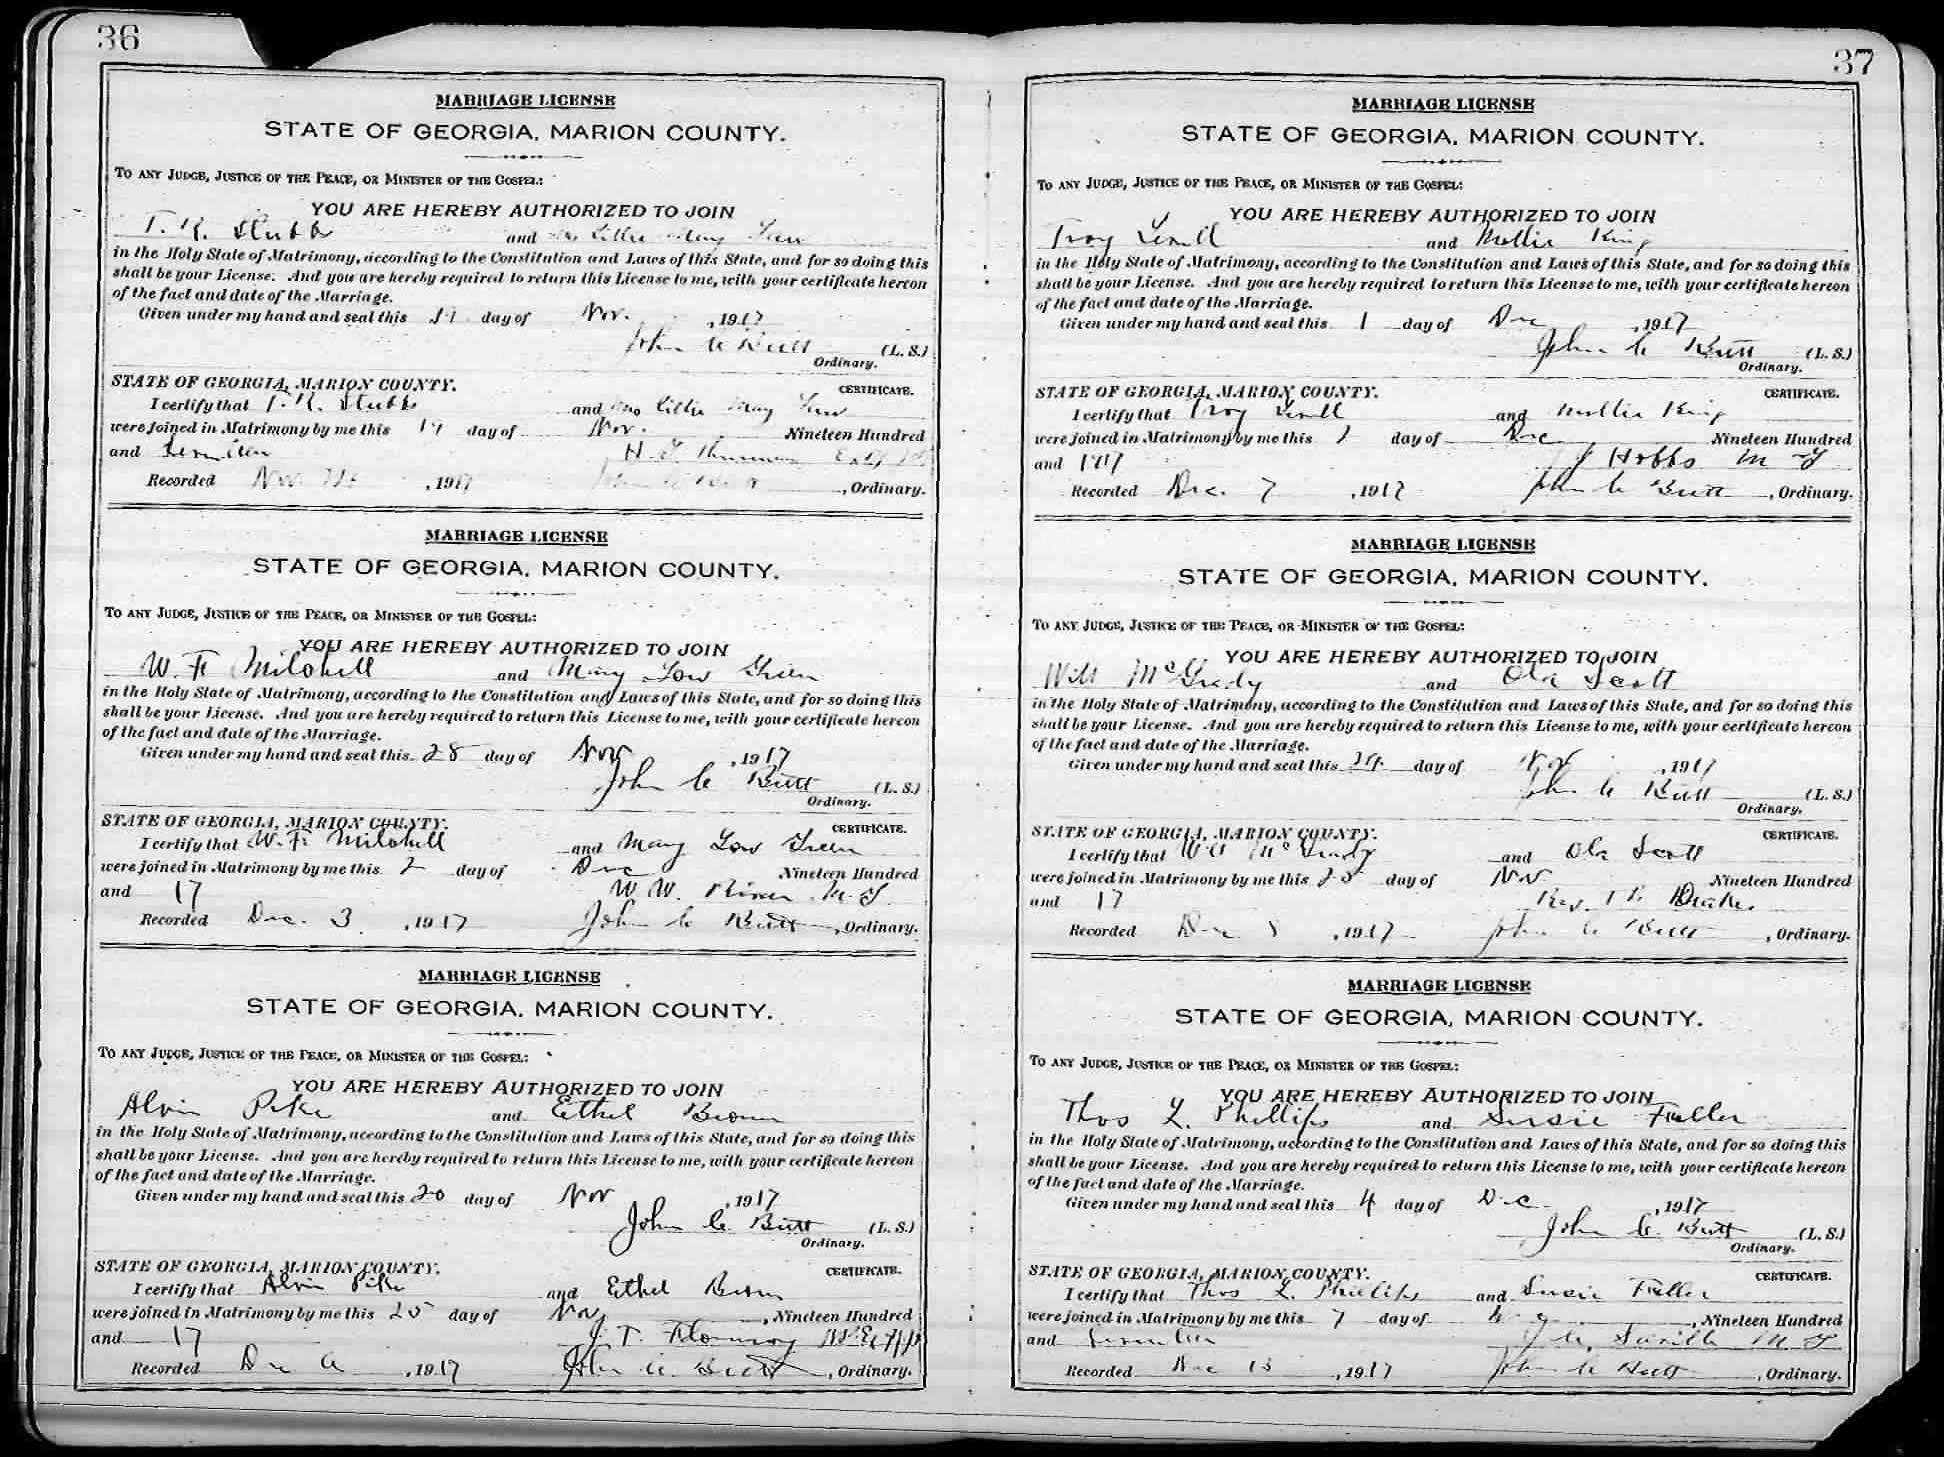 36
MARRIAGE LICENSE
STATE OF GEORGIA, MARION COUNTY.
TO ANY JUDGE, JUSTICE OF THE PEACE, OR MINISTER OF THE GOSPEL:
YOU ARE HEREBY AUTHORIZED TO JOIN
T. K. Stubbs and Mrs Lillie May
in the Holy State of Matrimony, according to the Constitution and Laws of this State, and for so doing this
shall be your License. And you are hereby required to return this License to me, with your certificate hereon
of the fact and date of the Marriage.
Given under my hand and seal this 19 day of Nov. , 1917
John C Butt (L. S.)
Ordinary.
STATE OF GEORGIA, MARION COUNTY. CERTIFICATE.
I certify that T. K. Stubbs and Mrs Lillie May
were joined in Matrimony by me this 19 day of Nov. Nineteen Hundred
and Seventeen H. T.
Recorded Nov. , 1917 John C Butt , Ordinary.
MARRIAGE LICENSE
STATE OF GEORGIA, MARION COUNTY.
TO ANY JUDGE, JUSTICE OF THE PEACE, OR MINISTER OF THE GOSPEL:
YOU ARE HEREBY AUTHORIZED TO JOIN
W. F. Mitchell and Mary Low Green
in the Holy State of Matrimony, according to the Constitution and Laws of this State, and for so doing this
shall be your License. And you are hereby required to return this License to me, with your certificate hereon
of the fact and date of the Marriage.
Given under my hand and seal this 28 day of Nov , 1917
John C Butt (L. S.)
Ordinary.
STATE OF GEORGIA, MARION COUNTY. CERTIFICATE.
I certify that W. F. Mitchell and Mary Low Green
were joined in Matrimony by me this 2 day of Dec Nineteen Hundred
and 17 W. W. M. G
Recorded Dec. 3 , 1917 John C Butt , Ordinary.
MARRIAGE LICENSE
STATE OF GEORGIA, MARION COUNTY.
TO ANY JUDGE, JUSTICE OF THE PEACE, OR MINISTER OF THE GOSPEL:
YOU ARE HEREBY AUTHORIZED TO JOIN
Alvin Pike and Ethel Brown
in the Holy State of Matrimony, according to the Constitution and Laws of this State, and for so doing this
shall be your License. And you are hereby required to return this License to me, with your certificate hereon
of the fact and date of the Marriage.
Given under my hand and seal this 20 day of Nov , 1917
John C. Butt (L. S.)
Ordinary.
STATE OF GEORGIA, MARION COUNTY. CERTIFICATE.
I certify that Alvin Pike and Ethel Brown
were joined in Matrimony by me this 25 day of Nov , Nineteen Hundred
and 17 J. T. Flournoy
Recorded Dec , 1917 John C. Butt , Ordinary.
37
MARRIAGE LICENSE
STATE OF GEORGIA, MARION COUNTY.
TO ANY JUDGE, JUSTICE OF THE PEACE, OR MINISTER OF THE GOSPEL:
YOU ARE HEREBY AUTHORIZED TO JOIN
Troy and Mollie King
in the Holy State of Matrimony, according to the Constitution and Laws of this State, and for so doing this
shall be your License. And you are hereby required to return this License to me, with your certificate hereon
of the fact and date of the Marriage.
Given under my hand and seal this 1 day of Dec , 1917
John C Butt (L. S.)
Ordinary.
STATE OF GEORGIA, MARION COUNTY. CERTIFICATE.
I certify that Troy and Mollie King
were joined in Matrimony by me this day of Dec Nineteen Hundred
and 1917 Hobbs M G
Recorded Dec. 7 , 1917 John C Butt , Ordinary.
MARRIAGE LICENSE
STATE OF GEORGIA, MARION COUNTY.
TO ANY JUDGE, JUSTICE OF THE PEACE, OR MINISTER OF THE GOSPEL:
YOU ARE HEREBY AUTHORIZED TO JOIN
Will McGrady and Ola Scott
in the Holy State of Matrimony, according to the Constitution and Laws of this State, and for so doing this
shall be your License. And you are hereby required to return this License to me, with your certificate hereon
of the fact and date of the Marriage.
Given under my hand and seal this 24 day of Nov , 1917
John C Butt (L. S.)
Ordinary.
STATE OF GEORGIA, MARION COUNTY. CERTIFICATE.
I certify that Will McGrady and Ola Scott
were joined in Matrimony by me this 25 day of Nov Nineteen Hundred
and 17 Rev.
Recorded Dec 8 , 1917 John C Butt , Ordinary.
MARRIAGE LICENSE
STATE OF GEORGIA, MARION COUNTY.
TO ANY JUDGE, JUSTICE OF THE PEACE, OR MINISTER OF THE GOSPEL:
YOU ARE HEREBY AUTHORIZED TO JOIN
Thos L. Phillips and Susie Fuller
in the Holy State of Matrimony, according to the Constitution and Laws of this State, and for so doing this
shall be your License. And you are hereby required to return this License to me, with your certificate hereon
of the fact and date of the Marriage.
Given under my hand and seal this 4 day of Dec , 1917
John C. Butt (L. S.)
Ordinary.
STATE OF GEORGIA, MARION COUNTY. CERTIFICATE.
I certify that Thos L. Phillips and Susie Fuller
were joined in Matrimony by me this 7 day of , Nineteen Hundred
and Seventeen M G
Recorded Dec 13 , 1917 John C Butt , Ordinary.